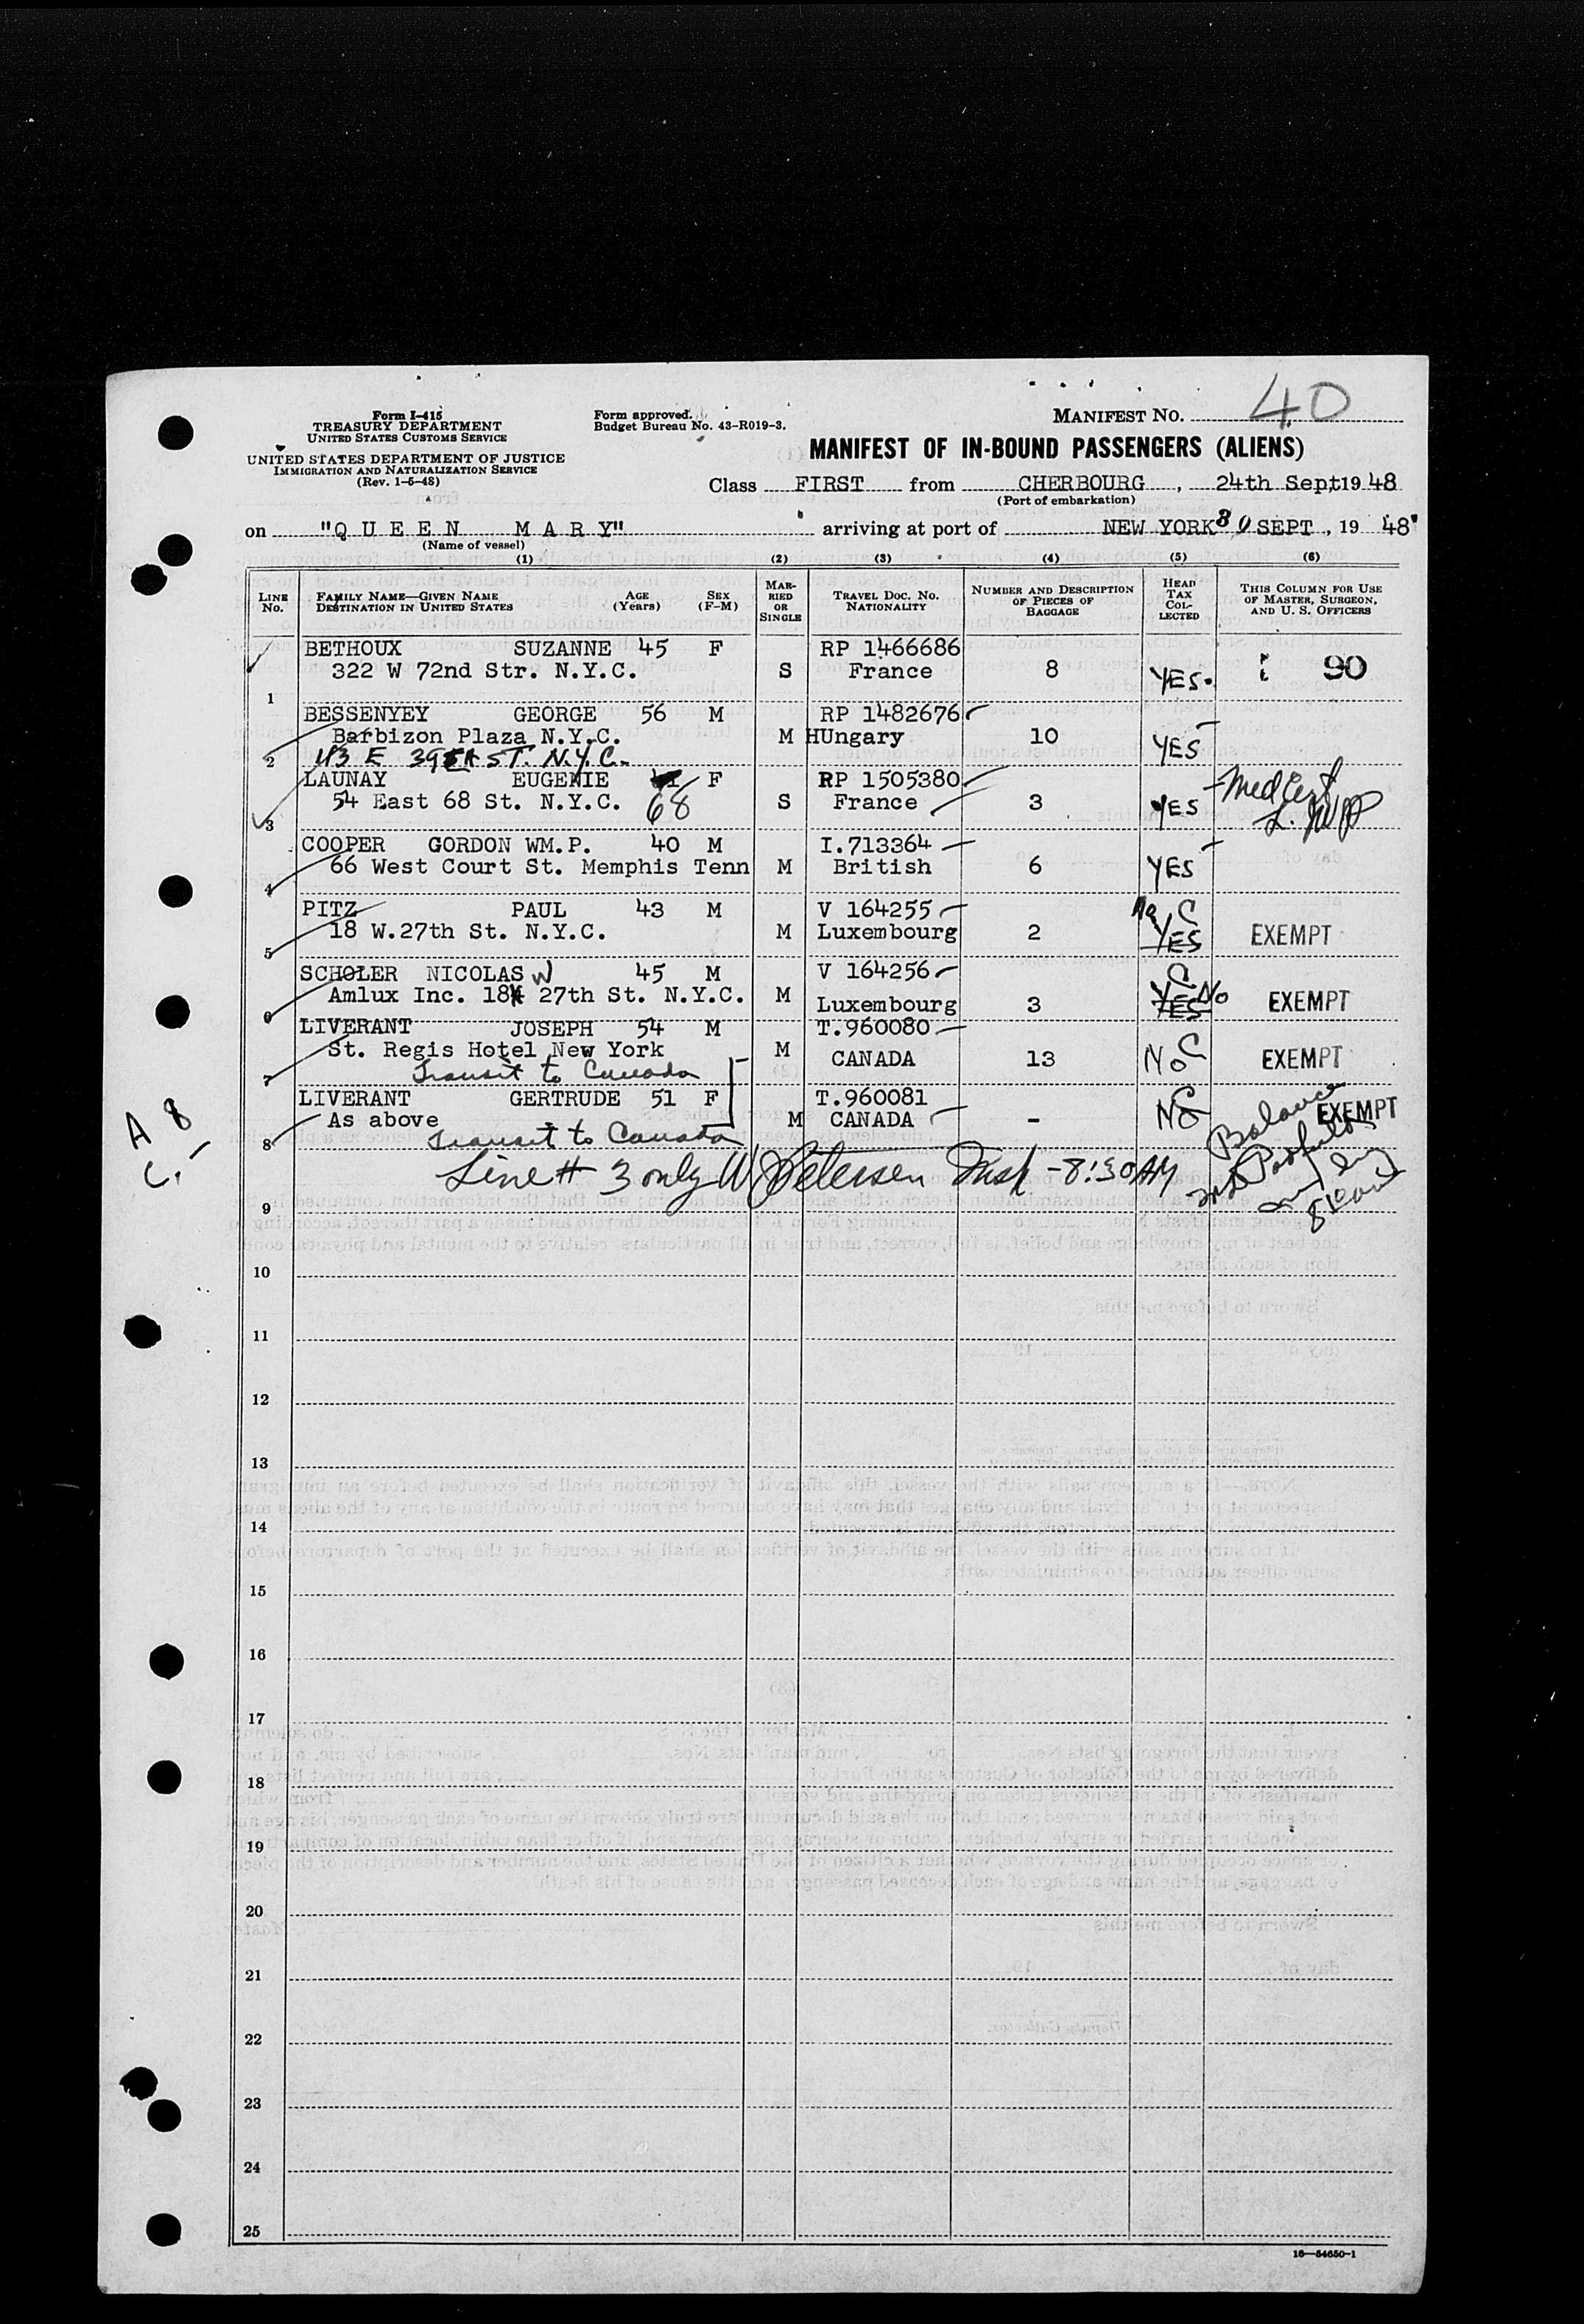 40
Form I-415
TREASURY DEPARTMENT
UNITED STATES CUSTOMS SERVICE
UNITED STATES DEPARTMENT OF JUSTICE
IMMIGRATION AND NATURALIZATION SERVICE
(Rev. 1-5-48)
Form approved.
Budget Bureau No. 43-R019-3.
MANIFEST NO.
MANIFEST OF IN-BOUND PASSENGERS (ALIENS)
Class FIRST from CHERBOURG, 24th Sept 19 48
(Port of embarkation)
on "QUEEN MARY" arriving at port of NEW YORK 30 SEPT, 19 48
(Name of vessel)
(1) (2) (3) (4) (5) (6)
LINE NO. FAMILY NAME—GIVEN NAME DESTINATION IN UNITED STATES AGE (Years) SEX (F-M) MARRIED OR SINGLE TRAVEL DOC. NO. NATIONALITY NUMBER AND DESCRIPTION OF PIECES OF BAGGAGE HEAD TAX COLLECTED THIS COLUMN FOR USE OF MASTER, SURGEON, AND U. S. OFFICERS
BETHOUX SUZANNE 45 F RP 1466686
1 322 W 72nd Str. N.Y.C. S France 8 YES. 90
BESSENYEY GEORGE 56 M RP 1482676
Barbizon Plaza N.Y.C. M HUngary 10 YES
2 113 E 39th ST. N.Y.C.
LAUNAY EUGENIE F RP 1505380
3 54 East 68 St. N.Y.C. 68 S France 3 YES Med Cert
COOPER GORDON WM.P. 40 M I.713364
4 66 West Court St. Memphis Tenn M British 6 YES
PITZ PAUL 43 M V 164255 No C
5 18 W.27th St. N.Y.C. M Luxembourg 2 YES EXEMPT
SCHOLER NICOLAS 45 M V 164256 C
6 Amlux Inc. 18 W 27th St. N.Y.C. M Luxembourg 3 YES No EXEMPT
LIVERANT JOSEPH 54 M T.960080
St. Regis Hotel New York M CANADA 13 No C EXEMPT
7 Transit to Canada
LIVERANT GERTRUDE 51 F T.960081 C
As above M CANADA - No EXEMPT
8 Transit to Canada
A 8
C. -
Line # 3 only W Petersen Insp - 8:30 AM
Balance
9
10
11
12
13
14
15
16
17
18
19
20
21
22
23
24
25
16—54650-1